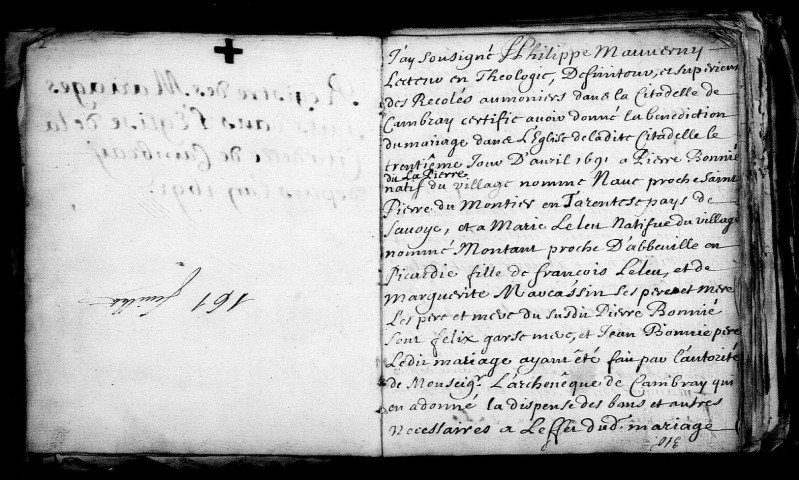 2
Registre des Mariages
faits dans l'Eglise de la
Citadelle de Cambray
depuis l'an 1691.
161 feuillets
J'ay sousigné F Philippe Mauverny
Lecteur en Theologie, Definitour, et superieur
des Recolés aumoniers dans la Citadelle de
Cambray certifie avoir donné la benediction
du mariage dans L'Eglise de ladite Citadelle le
trentiême Jour D'avril 1691 a Pierre Bonnié
dit La Pierre
natif du village nommé Nauc proche Saint
Pierre du Montier en Tarentese pays de
Savoye, et a Marie Leleu Natifue du village
nommé Montant proche D'abbeville en
Picardie fille de francois Leleu, et de
Marguerite Maucassin ses pere et mere
Les pere et mere du susdit Pierre Bonnié
sont felix garse mere, et Jean Bonnie pere
Ledit mariage ayant été fait par l'autorité
de Monseigr. L'archevêque de Cambray qui
en a donné la dispense des bans et autres
necessaires a Leffet dud. mariage